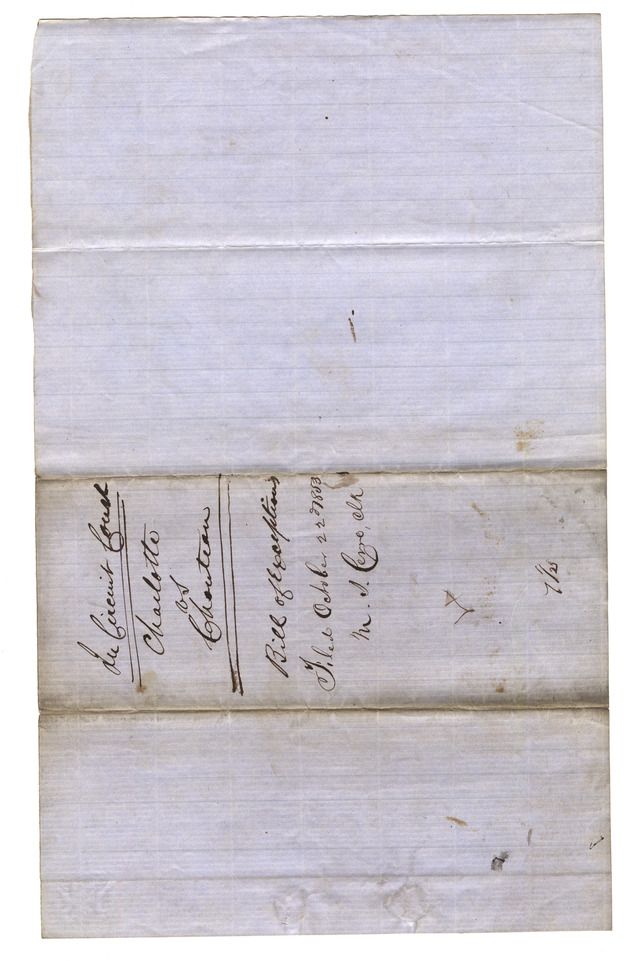 In Circuit Court
Charlotte
vs
Chouteau
Bill of Exceptions
Filed October 22d 1853
M. S. Cerre, Clk